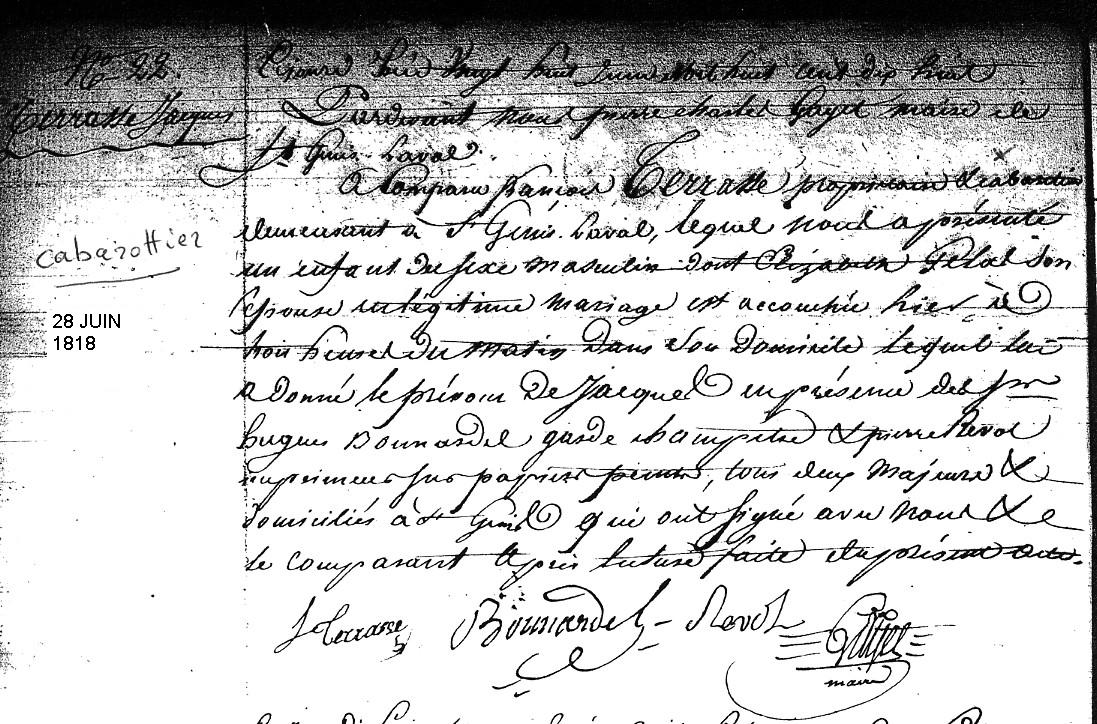 No 22.
Terrasse Jacques
cabarottier
28 JUIN
1818
Cejourd'hui Vingt huit Juin mil huit cent dix huit
Pardevant nous pierre charles Gayet maire de
St Genis-Laval.
A Comparu francois Terrasse propriétaire &
demeurant à St Genis-Laval, lequel nous a présenté
un enfant du sexe masculin dont Elizabeth son
Epouse en légitime mariage est accouchée hier à
trois heures du matin dans son Domicile lequel lui
a donné le prénom De Jacques en présence des srs
hugues Bonnardel garde champetre & pierre Revol
imprimeur sur papiers peints, tous deux majeurs &
domiciliés à St Genis qui ont signé avec nous &
le comparant Après lecture faite du présent acte.
Terrasse Bonnardel Revol Gayet
maire